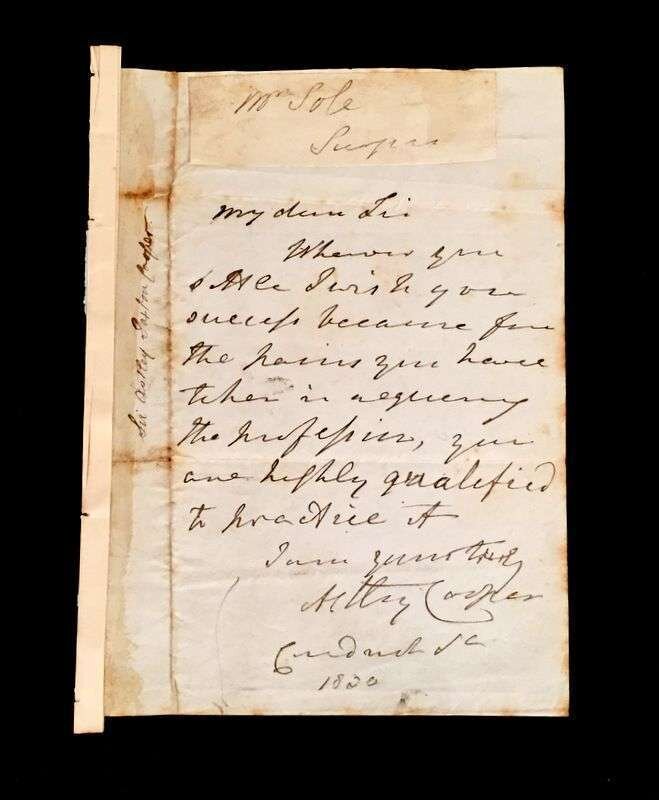 Mr Sole
Surgeon
My dear Sir
Wherever you
settle I wish you
success because from
the pains you have
taken in acquiring
the profession, you
are highly qualified
to practice it
I am yours truly
Astley Cooper
Conduit St
1830
Sir Astley Paston Cooper.